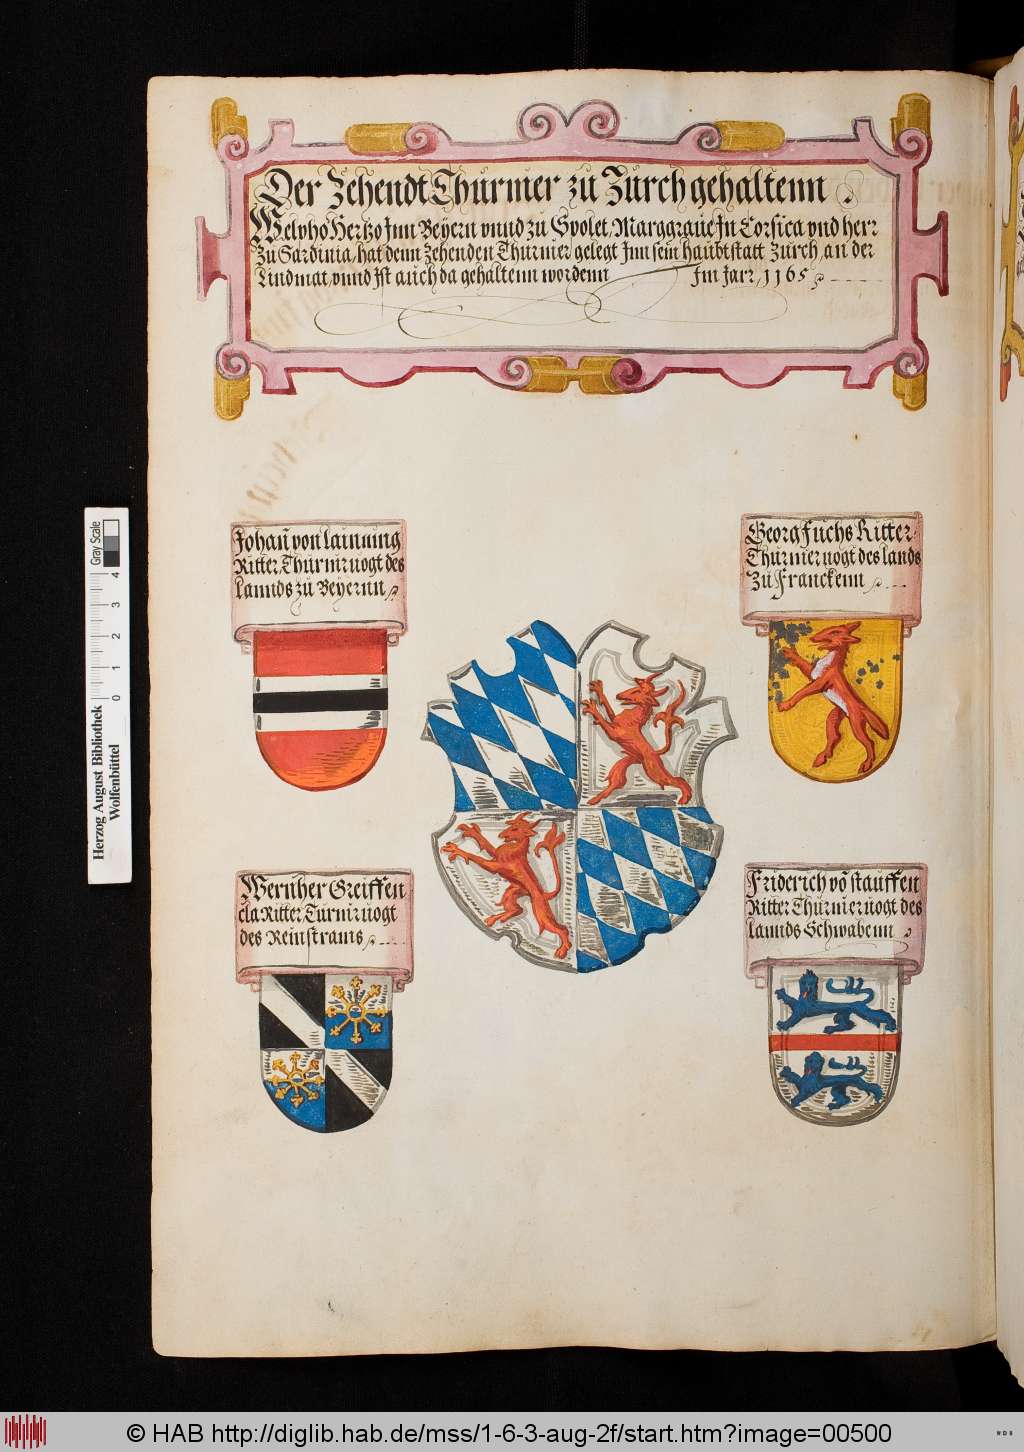 Der Zehendt Thurnier zu Zürch gehaltenn
Welpho Hertzo Inn Beÿern vnnd zu Spolet, Marggraue In Corsica vnd herr
Zu Sardinia, hat denn Zehenden Thurnier gelegt Inn sein haubtstatt Zürch, an der
Lindmat, vnnd Ist auch da gehaltenn wordenn Im Jarr, 1165
Johan̄ von lainning
Ritter Thurniruogt des
lannds zu Beÿernn
Georg fuchs Ritter
Thurnieruogt des lands
Zu Franckenn
Wernher Greiffen
cla Ritter Turniruogt
des Reinstrams
Friderich vō stauffen
Ritter Thurnieruogt des
lannds Schwabenn
Herzog August Bibliothek
Wolfenbüttel
0 1 2 3 4
Gray Scale
© HAB http://diglib.hab.de/mss/1-6-3-aug-2f/start.htm?image=00500